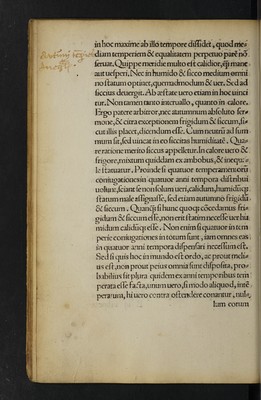 in hoc maxime ab illo tempore dissidet, quod me-
diam temperiem & equalitatem perpetuo
seruat. Quippe meridie multo est calidior, mane
aut uesperi. Nec in humido & sicco medium omni
no statum optinet, quemadmodum & uer. Sed ad
siccius deuergit. Ab æstate uero etiam in hoc uinci
tur. Non tamen tanto interuallo, quanto in calore.
Ergo patet arbitror, nec autumnum absoluto ser-
mone, & citra exceptionem frigidum & siccum, si-
cut illis placet, dicendum esse. Cum neutrum ad sum
mum sit, sed uincat in eo siccitas humiditatē. Qua-
re ratione merito siccus appelletur. In calore uero &
frigore, mixtum quiddam ex ambobus, & inequa
le statuatur. Proinde si quatuor temperamentorū
coniugationes in quatuor anni tempora distribui
uolunt, sciant se non solum ueri, calidum, humidūq;
statum male assignasse, sed etiam autumno frigidū
& siccum. Quanq̄ si hunc quoq; cōcedamus fri-
gidum & siccum esse, non erit statim necesse uer hu
midum calidūq; esse. Non enim si quatuor in tem
perie coniugationes in totum sunt, iam omnes eas
in quatuor anni tempora dispensari necessum est.
Sed si quis hic in mundo est ordo, ac prout meli-
us est, non prout peius omnia sunt disposita, pro-
babilius sit plura quidem ex anni temporibus tem
perata esse facta, unum uero, si modo aliquod, intē
peratum, hi uero contra ostendere conantur, nul-
lum eorum